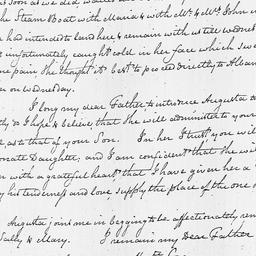 as soon as we did
the Steam Boat with Maria & with Mr. & Mrs. John
had intended to land her & remain with us till Wednesday
unfortunately caught cold in her face which
pain she thought it best to proceed directly to Albany
on Wednesday.
I long my dear Father to introduce Augusta to
& I hope & believe that she will admitted to your
as to that of your Son. In her I trust you will
Daughter; and I am confident that she will
with a grateful heart that I have given her a
by his tenderness and love, supply the place of the one
Augusta joins me in begging to be affectionately
Sally & Mary. I remain my Dear Father